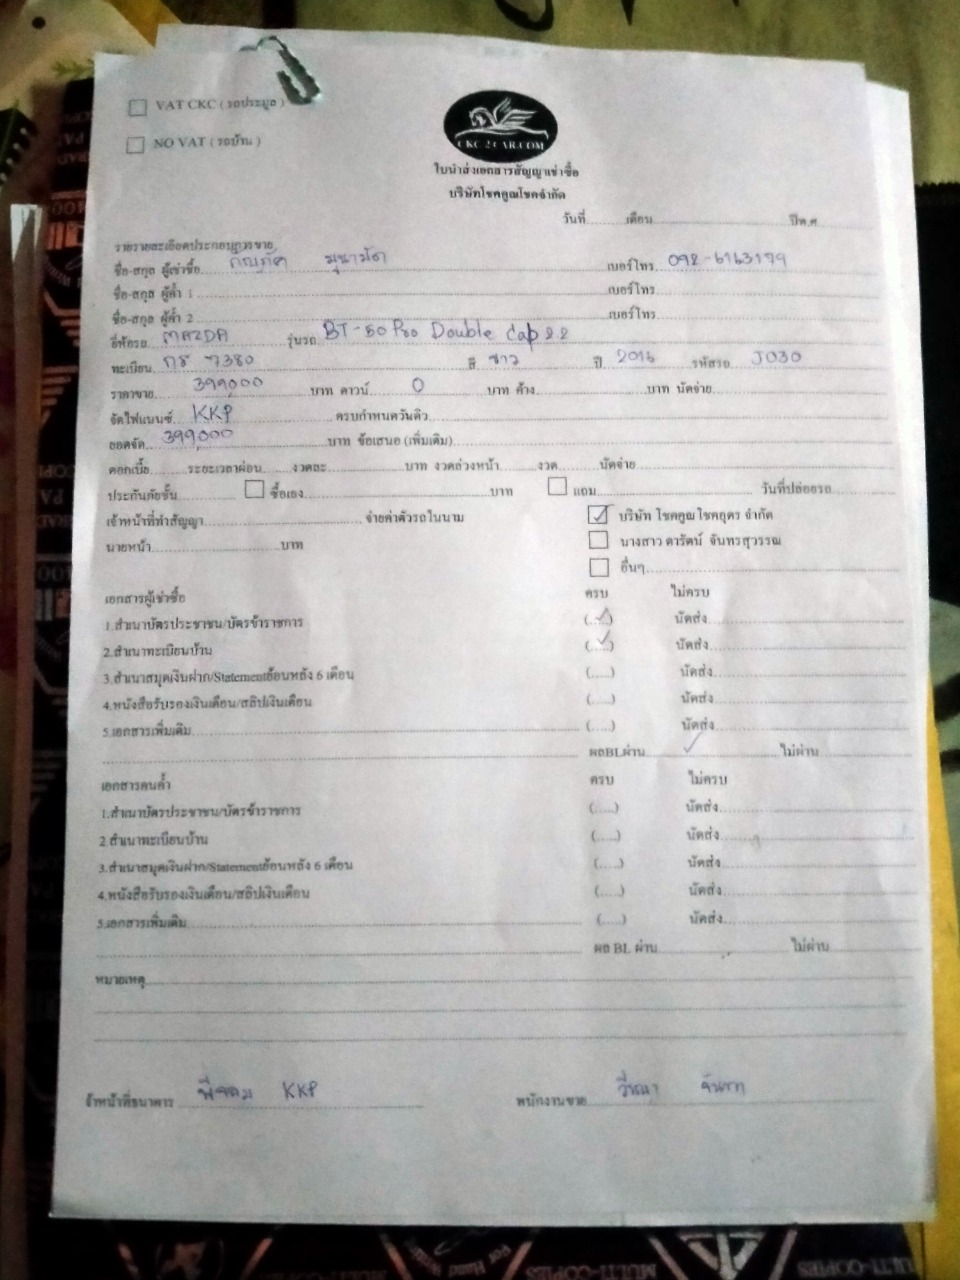 VAT CKC ( รถประมูล )
NO VAT ( รถบ้าน )
CKC 2 CAR.COM
ใบนำส่งเอกสารสัญญาเช่าซื้อ
บริษัทโชคคูณโชคจำกัด
วันที่.......เดือน..............................ปีพ.ศ
รายรายละเอียดประกอบการขาย
ชื่อ-สกุล ผู้เช่าซื้อ เบอร์โทร 092-6163179
ชื่อ-สกุล ผู้ค้ำ 1 เบอร์โทร
ชื่อ-สกุล ผู้ค้ำ 2 เบอร์โทร
ยี่ห้อรถ MAZDA รุ่นรถ BT-50 Pro Double Cap 2.2
ทะเบียน 7380 สี ขาว ปี 2015 รหัสรถ J030
ราคาขาย 399,000 บาท ดาวน์ 0 บาท ค้าง บาท นัดจ่าย
จัดไฟแนนซ์ KKP ครบกำหนดวันดิว
ยอดจัด 399,000 บาท ข้อเสนอ (เพิ่มเติม)
ดอกเบี้ย ระยะเวลาผ่อน งวดละ บาท งวดล่วงหน้า งวด นัดจ่าย
ประกันภัยชั้น ซื้อเอง บาท แถม วันที่ปล่อยรถ
เจ้าหน้าที่ทำสัญญา จ่ายค่าตัวรถในนาม ✓ บริษัท โชคคูณโชคอุดร จำกัด
นายหน้า บาท นางสาว ดารัตน์ จันทรสุวรรณ
อื่นๆ
เอกสารผู้เช่าซื้อ ครบ ไม่ครบ
1.สำเนาบัตรประชาชน/บัตรข้าราชการ (✓) นัดส่ง
2.สำเนาทะเบียนบ้าน (✓) นัดส่ง
3.สำเนาสมุดเงินฝาก/Statementย้อนหลัง 6 เดือน (.....) นัดส่ง
4.หนังสือรับรองเงินเดือน/สลิปเงินเดือน (.....) นัดส่ง
5.เอกสารเพิ่มเติม (.....) นัดส่ง
ผลBLผ่าน ✓ ไม่ผ่าน
เอกสารคนค้ำ ครบ ไม่ครบ
1.สำเนาบัตรประชาชน/บัตรข้าราชการ (.....) นัดส่ง
2.สำเนาทะเบียนบ้าน (.....) นัดส่ง
3.สำเนาสมุดเงินฝาก/Statementย้อนหลัง 6 เดือน (.....) นัดส่ง
4.หนังสือรับรองเงินเดือน/สลิปเงินเดือน (.....) นัดส่ง
5.เอกสารเพิ่มเติม (.....) นัดส่ง
ผล BL ผ่าน ไม่ผ่าน
หมายเหตุ
จ้าหน้าที่ธนาคาร KKP พนักงานขาย
For Hand Writing
MULTI-COPIES
MULTI-COPIES